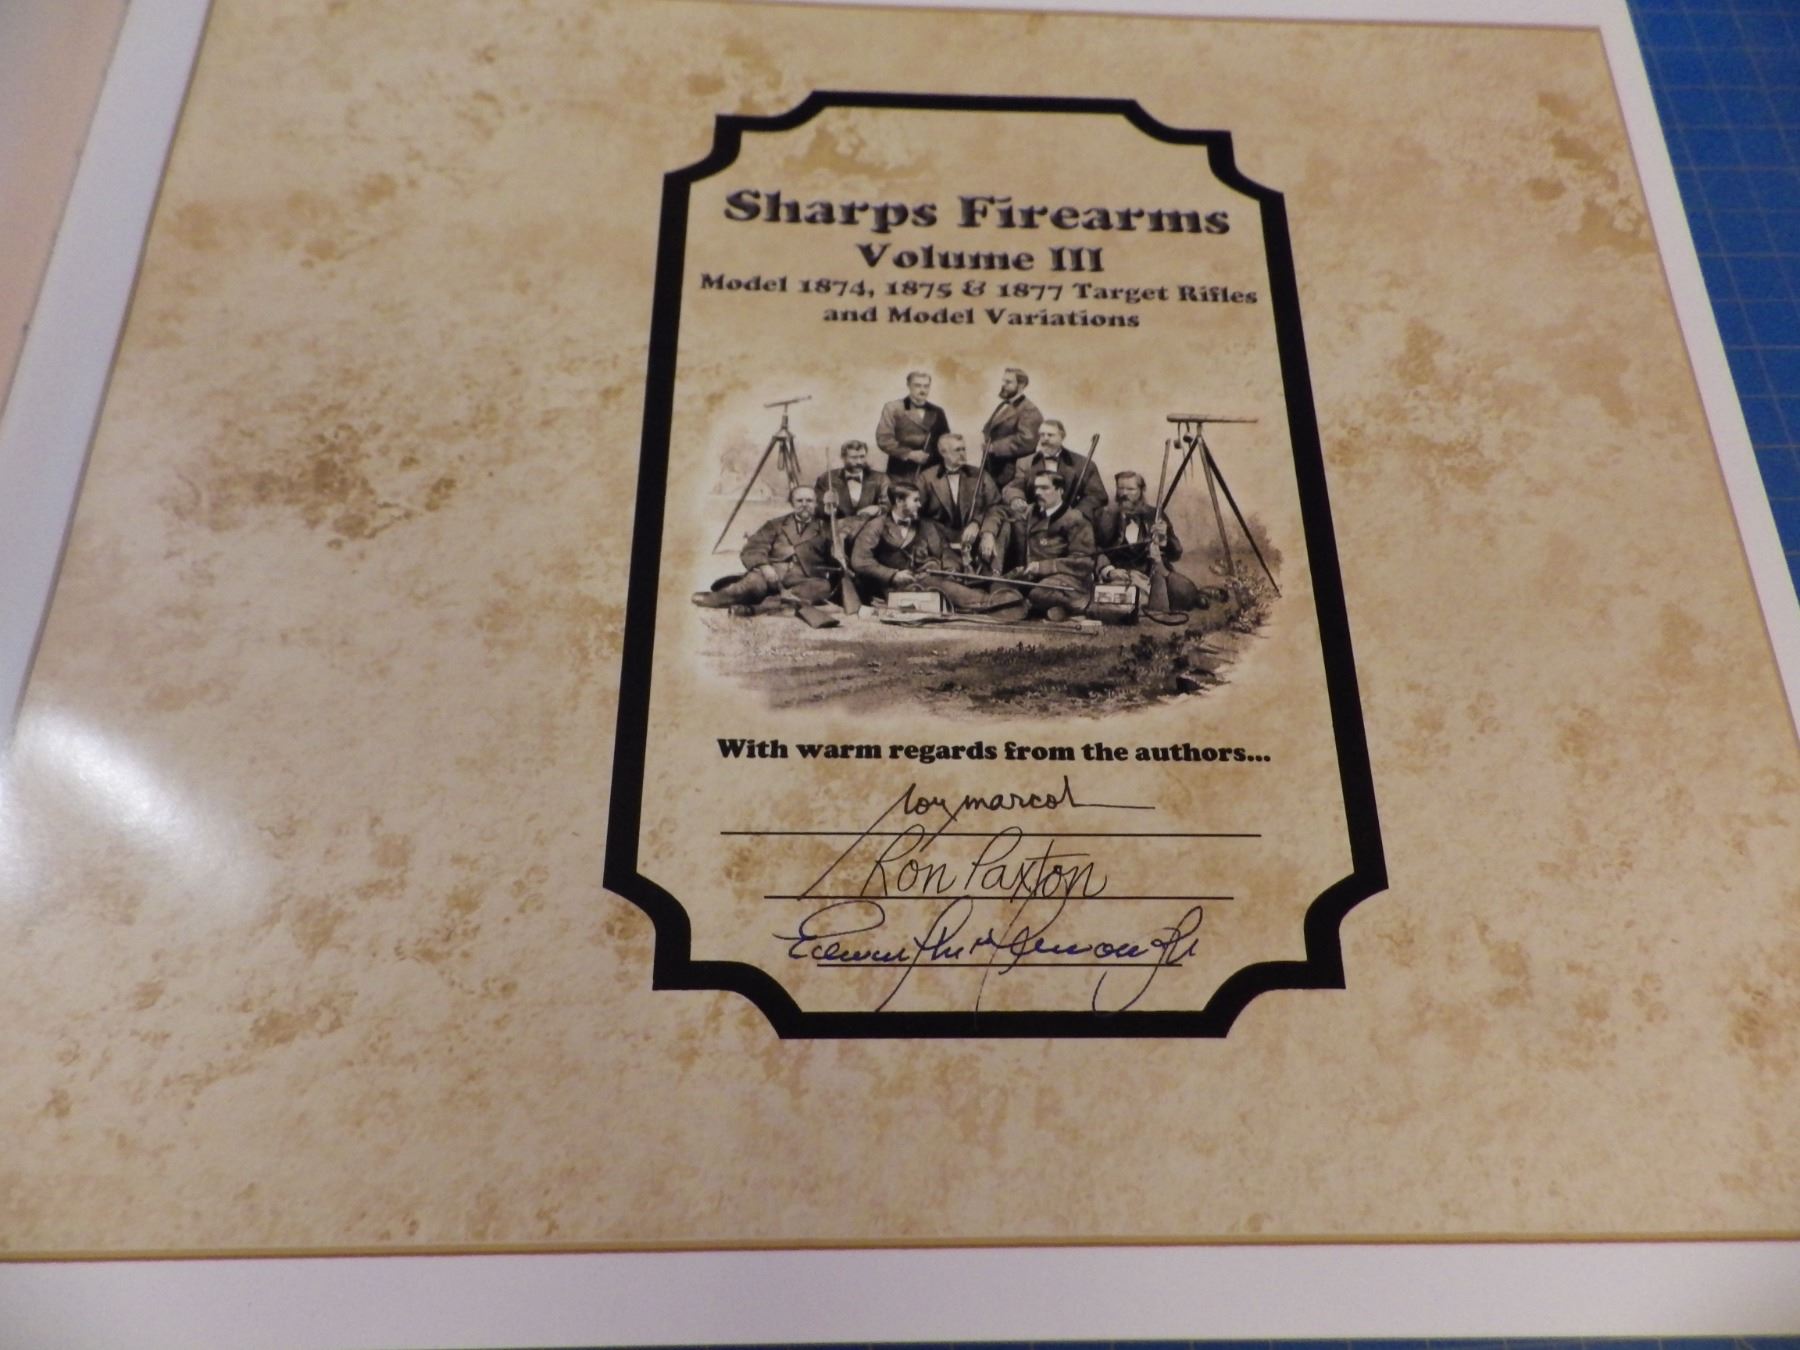 Sharps Firearms
Volume III
Model 1874, 1875 & 1877 Target Rifles
and Model Variations
With warm regards from the authors...
roy marcot
Ron Paxton